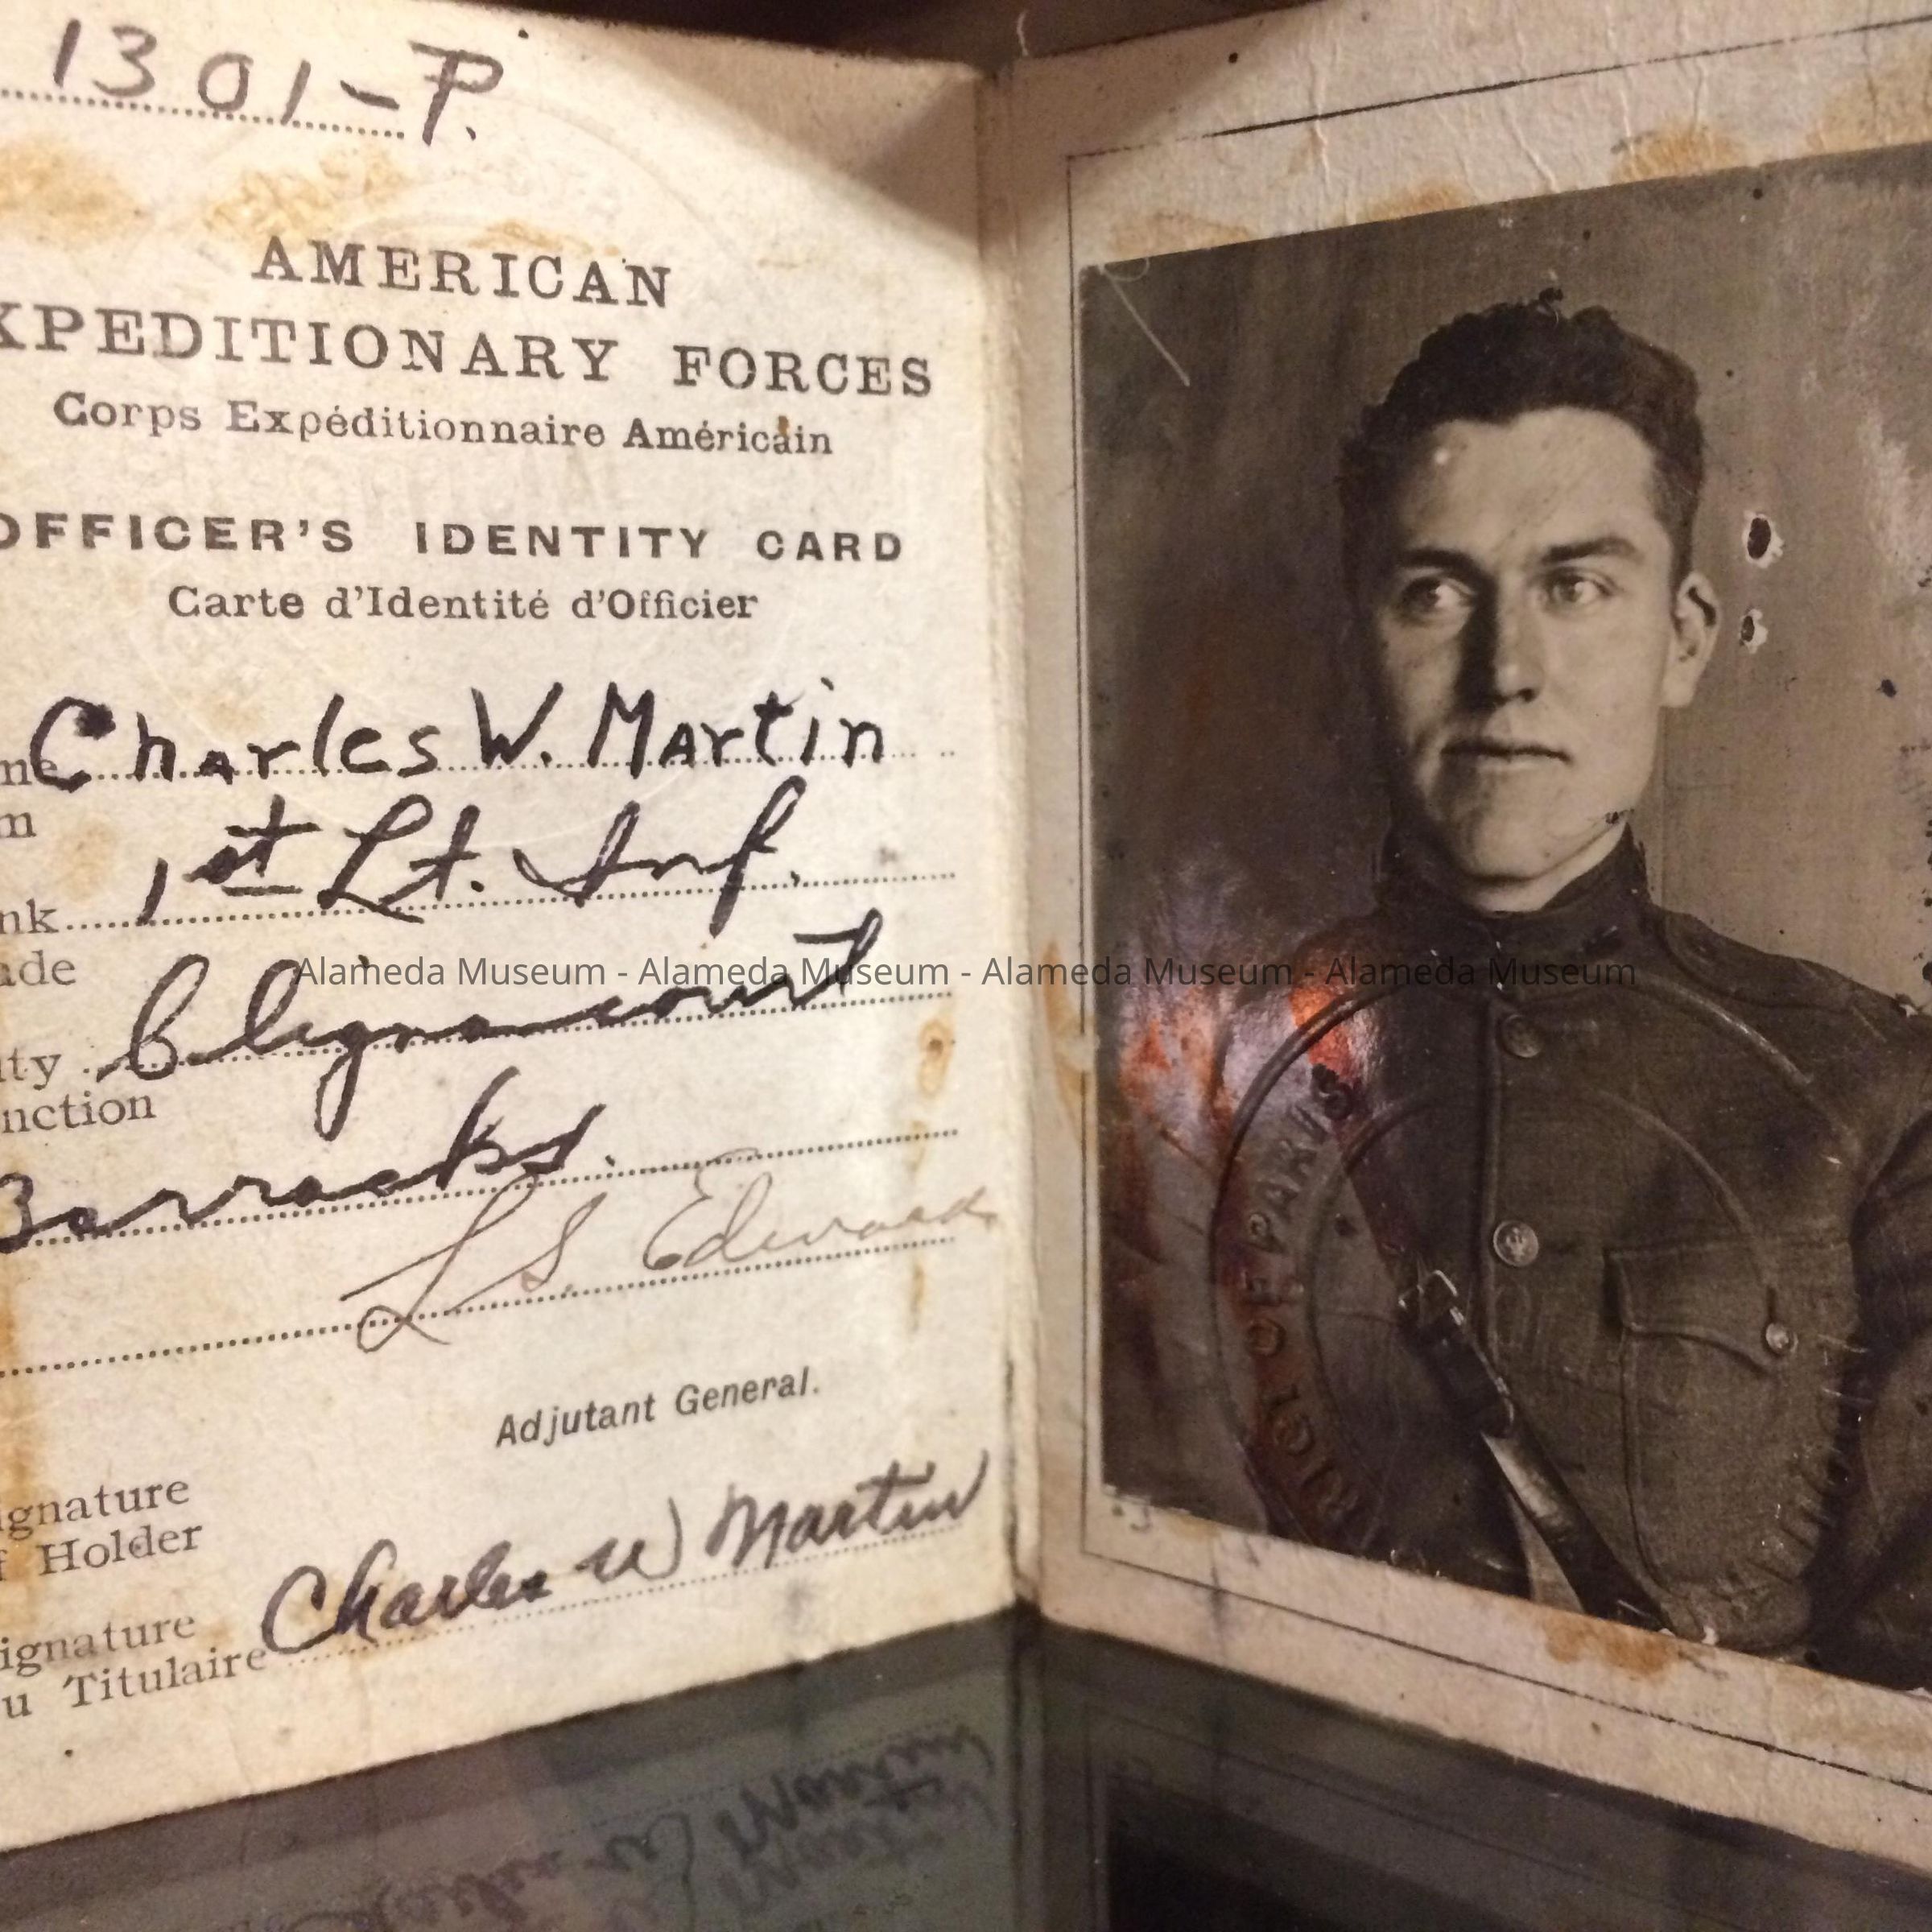 1301-P.
AMERICAN
XPEDITIONARY FORCES
Corps Expéditionnaire Américain
OFFICER'S IDENTITY CARD
Carte d'Identité d'Officier
me Charles W. Martin
m
nk 1st Lt. Inf.
ade
uty Clignancourt
nction
Barracks.
L S. Edwards
Adjutant General.
ignature
f Holder
Charles W Martin
ignature
u Titulaire
OF PARIS
Alameda Museum - Alameda Museum - Alameda Museum - Alameda Museum